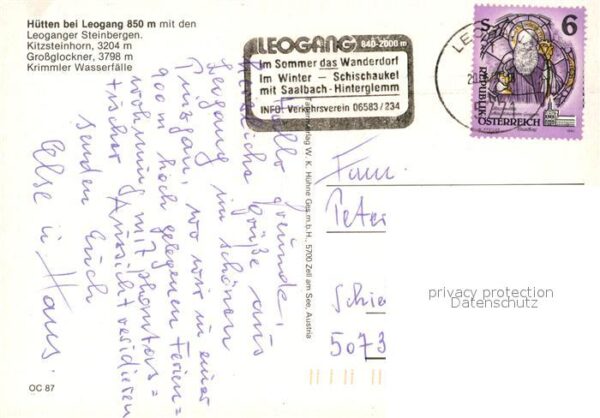 Hütten bei Leogang 850 m mit den
Leoganger Steinbergen.
Kitzsteinhorn, 3204 m
Großglockner, 3798 m
Krimmler Wasserfälle
LEOGANG 840-2000 m
Im Sommer das Wanderdorf
Im Winter – Schischaukel
mit Saalbach-Hinterglemm
INFO: Verkehrsverein 06583/234
6
REPUBLIK
ÖSTERREICH
Hallo Freunde,
Herzliche Grüße aus
Leogang im schönen
Pinzgau, wo wir in einer
900 m hoch gelegenen Ferien=
wohnung mit phantas=
tischer Aussicht residieren
senden Euch
Else u Hans.
W. K. Hühne Ges.m.b.H., 5700 Zell am See, Austria
Fam.
Peter
Schie
5073
privacy protection
Datenschutz
OC 87